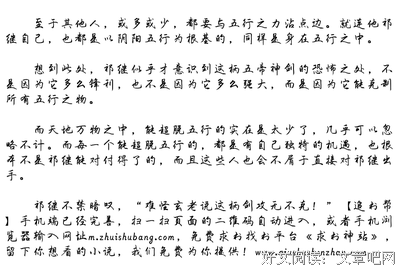 至于其他人，或多或少，都要与五行之力沾点边。就连他祁
继自己，也都是以阴阳五行为根基的，同样是身在五行之中。
想到此处，祁继似乎才意识到这柄五帝神剑的恐怖之处，不
是因为它多么锋利，也不是因为它多么强大，而是因为它能克制
所有五行之物。
而天地万物之中，能超脱五行的实在是太少了，几乎可以忽
略不计。而每一个能超脱五行的，都是有自己独特的机遇，也根
本不是祁继能对付得了的，而且这些人也会不屑于直接对祁继出
手。
祁继不禁暗叹，“难怪玄老说这柄剑攻无不克！”【追书帮
】手机端已经完善，扫一扫页面的二维码自动进入，或者手机浏
览器输入网址m.zhuishubang.com，免费求书找书平台《求书神站》，
留下你想看的小说，我们免费为你提供！www.qiushuzhan.com
好文阅读：文章吧网